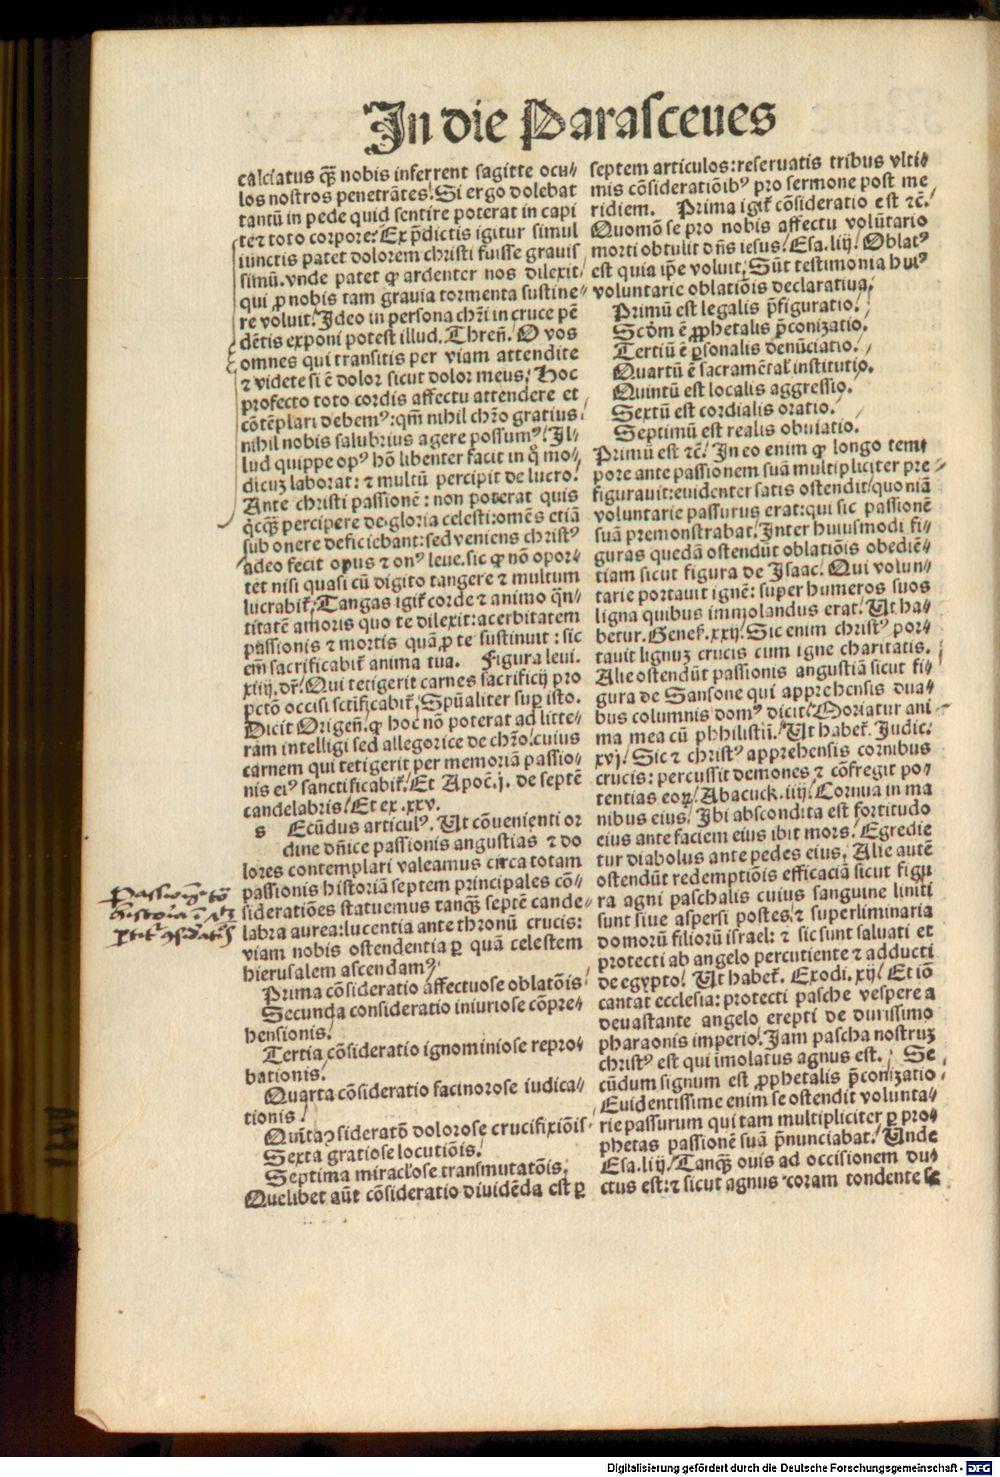 In die Parasceues
calciatus qꝫ̃ nobis inferrent sagitte ocu⸗
los nostros penetrãtes. Si ergo dolebat
tantũ in pede quid sentire poterat in capi
te ⁊ toto corpore. Ex p̃dictis igitur simul
iunctis patet dolorem christi fuisse grauis
simũ. vnde patet ꝙ ardenter nos dilexit
qui ꝓ nobis tam grauia tormenta sustine⸗
re voluit. Ideo in persona chr̃i in cruce pẽ
dẽtis exponi potest illud. Threñ. O vos
omnes qui transitis per viam attendite
⁊ videte si ẽ dolor sicut dolor meus. Hoc
profecto toto cordis affectu attendere et
cõtẽplari debemꝰ: qm̃ nihil chr̃o gratius
nihil nobis salubrius agere possumꝰ. Il⸗
lud quippe opꝰ hõ libenter facit in q̊ mo⸗
dicuꝫ laborat: ⁊ multũ percipit de lucro.
Ante christi passionẽ: non poterat quis
q̃cqꝫ̃ percipere de gloria celesti: om̃es etiã
sub onere deficiebant: sed veniens christꝰ
adeo fecit opus ⁊ onꝰ leue. sic ꝙ nõ opor⸗
tet nisi quasi cũ digito tangere ⁊ multum
lucrabit̃. Tangas igit̃ corde ⁊ animo q̃n⸗
titatẽ amoris quo te dilexit: acerbitatem
passionis ⁊ mortis quã ꝓ te sustinuit: sic
em̃ sacrificabit̃ anima tua. Figura leui.
xiiij. dr̃. Qui tetigerit carnes sacrificij pro
pctõ occisi sctificabit̃. Spũaliter suꝑ isto.
Dicit Origeñ. ꝙ hoc nõ poterat ad litte⸗
ram intelligi sed allegorice de chr̃o. cuius
carnem qui tetigerit per memoriã passio⸗
nis eiꝰ sanctificabit̃. Et Apoc̃. j. de septẽ
candelabris. Et ex. xxv.
s Ecũdus articulꝰ. Ut cõuenienti or
dine dñice passionis angustias ⁊ do
lores contemplari valeamus circa totam
passionis historiã septem principales cõ⸗
sideratiões statuemus tanqꝫ̃ septẽ cande⸗
labra aurea: lucentia ante thronũ crucis:
viam nobis ostendentia ꝑ quã celestem
hierusalem ascendamꝰ.
Prima cõsideratio affectuose oblatõnis
Secunda consideratio iniuriose cõpre⸗
hensionis.
Tertia cõsideratio ignominiose repro⸗
bationis.
Quarta cõsideratio facinorose iudica⸗
tionis.
Quĩta ꝯsideratõ dolorose crucifixiõis
Sexta gratiose locutiõis.
Septima miracl̃ose transmutatõis.
Quelibet aũt cõsideratio diuidẽda est ꝑ
septem articulos: reseruatis tribus vlti⸗
mis cõsideratiõibꝰ pro sermone post me
ridiem. Prima igit̃ cõsideratio est ⁊c̃.
Quomõ se pro nobis affectu volũtario
morti obtulit dñs iesus. Esa. liij. Oblatꝰ
est quia ip̃e voluit. Sũt testimonia huiꝰ
voluntarie oblatiõis declaratiua.
Primũ est legalis p̃figuratio.
Scd̃m ẽ ꝓphetalis p̃conizatio.
Tertiũ ẽ ꝑsonalis denũciatio.
Quartũ ẽ sacramẽtal̃ institutio.
Quintũ est localis aggressio.
Sextũ est cordialis oratio.
Septimũ est realis obuiatio.
Primũ est ⁊c̃. In eo enim ꝙ longo tem
pore ante passionem suã multipliciter pre
figurauit: euidenter satis ostendit quoniã
voluntarie passurus erat: qui sic passionẽ
suã premonstrabat. Inter huiusmodi fi⸗
guras quedã ostendũt oblatiõis obediẽ⸗
tiam sicut figura de Isaac. Qui volun⸗
tarie portauit ignẽ: super humeros suos
ligna quibus immolandus erat. Ut ha⸗
betur. Genes̃. xxij. Sic enim christꝰ por⸗
tauit lignuꝫ crucis cum igne charitatis.
Alie ostendũt passionis angustiã sicut fi⸗
gura de Sansone qui apprehensis dua⸗
bus columnis domꝰ dicit. Moriatur ani⸗
ma mea cũ phhilistiĩ. Ut habet̃. Judic.
xvj. Sic ⁊ christꝰ apprehensis cornibus
crucis: percussit demones ⁊ cõfregit po⸗
tentias eoꝝ. Abacuck. iiij. Cornua in ma
nibus eius. Ibi abscondita est fortitudo
eius ante faciem eius ibit mors. Egredie
tur diabolus ante pedes eius. Alie autẽ
ostendũt redemptiõis efficaciã sicut figu
ra agni paschalis cuius sanguine liniti
sunt siue aspersi postes. ⁊ superliminaria
domorũ filiorũ israel: ⁊ sic sunt saluati et
protecti ab angelo percutiente ⁊ adducti
de egypto. Ut habet̃. Exodi. xij. Et iõ
cantat ecclesia: protecti pasche vespere a
deuastante angelo erepti de durissimo
pharaonis imperio. Iam pascha nostruꝫ
christꝰ est qui ĩmolatus agnus est. Se
cũdum signum est ꝓphetalis p̃conizatio
Euidentissime enim se ostendit volunta⸗
rie passurum qui tam multipliciter ꝑ pro⸗
phetas passionẽ suã p̃nunciabat. Unde
Esa. liij. Tanqꝫ̃ ouis ad occisionem du⸗
ctus est: ⁊ sicut agnus coram tondente se
Digitalisierung gefördert durch die Deutsche Forschungsgemeinschaft - DFG